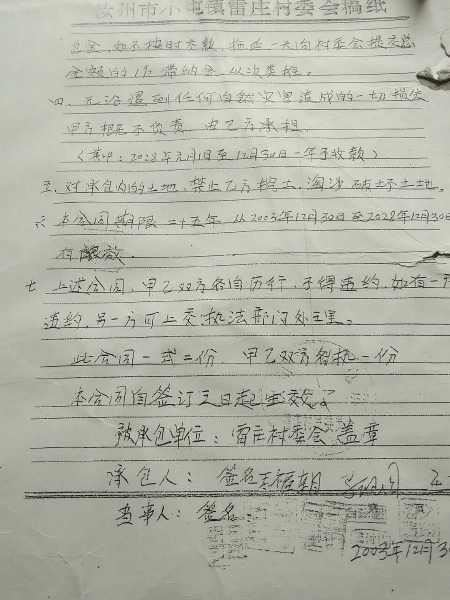 汝州市小屯镇雷庄村委会稿纸
金,如不按时交款,拖延一天向村委会提交总
金额的1%滞纳金,以次类推。
四、无论遇到任何自然灾害造成的一切损失
甲方概不负责,由乙方承担.
(其中:2028年元月1日至12月30日一年予收款)
五、对承包内的土地,禁止乙方挖土,淘沙破坏土地.
六 本合同期限二十五年 从2003年12月30日至2028年12月30日
有效.
七 上述合同,甲乙双方各自历行,予得违约,如有一方
违约,另一方可上交执法部门处理。
此合同一式二份 甲乙双方各执一份
本合同自签订之日起生效
被承包单位:雷庄村委会 盖章
承包人: 签名
当事人: 签名
2003年12月30